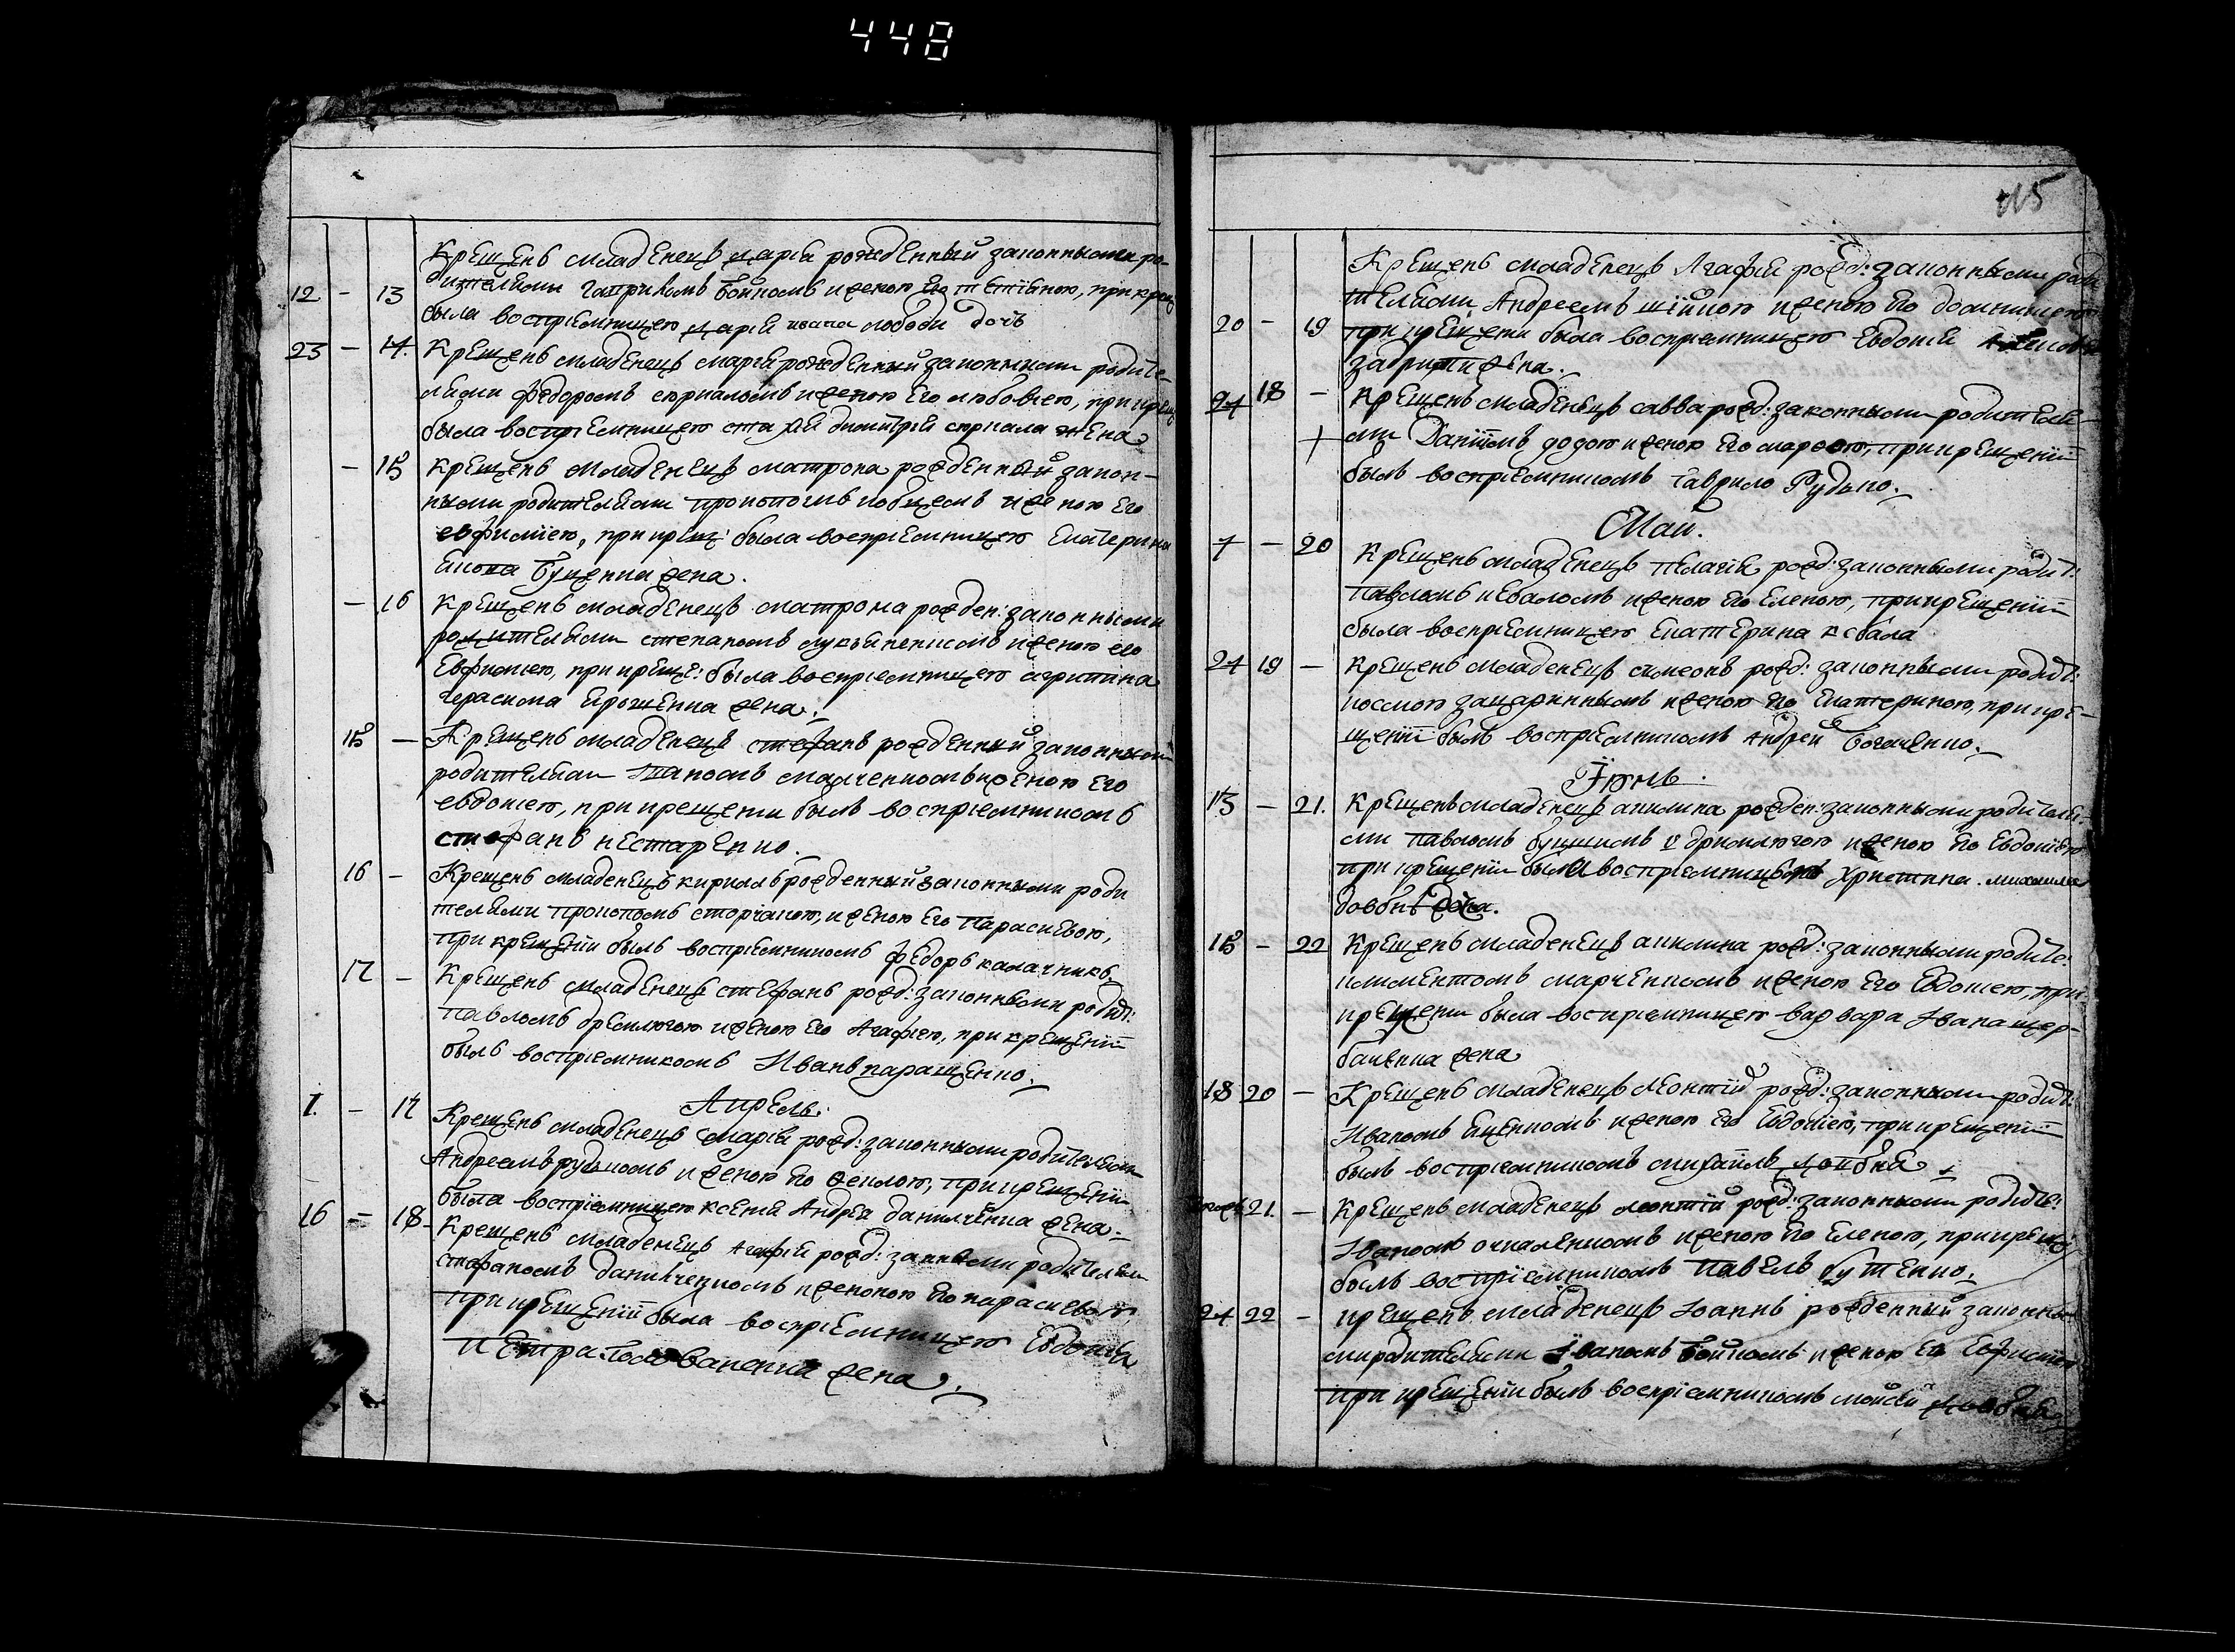 448
Крещенъ младенецъ марія рожденный законными ро-
12 - 13 дителями гаврииломъ бойкомъ и женою его
была восприемницею марія ивана любоди дочь
23 - 14. Крещенъ младенецъ марія рожденный законными родите-
лями федоромъ скриломъ и женою его любовію, при крещ
была восприемницею димитрія скрипала жена
- 15 Крещенъ младенецъ матрона рожденный закон-
ными родителями прокопомъ кобцемъ и женою его
евфиміею, при крещ: была восприемницею екатерина
якова буценка жена.
- 16 Крещенъ младенецъ матрона рожден: законными
родителями степаномъ лукъяненкомъ и женою его
Евфиміею, при креще: была восприемницею агрипина
герасима ярошенка жена.
15 - Крещенъ младенецъ стефанъ рожденный законными
родителями Иваномъ марченкомъ и женою его
евдокіею, при крещеніи былъ восприемникомъ
стефанъ нестаренко.
16 - Крещенъ младенецъ кириллъ рожденный законными роди
телями прокопомъ сторчакою, и женою его параскевою,
при крещеніи былъ восприемникомъ федоръ калачникъ
17 - Крещенъ младенецъ стефанъ рожд: законными родит:
павломъ дремлюгою и женою его Агафіею, при крещеніи
былъ восприемникомъ Иванъ паращенко.
Апрель.
1. - 17 Крещенъ младенецъ марія рожд: законными родителями
Андреемъ рудькомъ и женою его феклою, при крещеніи
была восприемницею ксенія Андрея данилченка жена
16 - 18 Крещенъ младенецъ Агафія рожд: законными родителями
стефаномъ данилченкомъ и женою его параскевою,
при крещеніи была восприемницею Евдокія
петра голованенка жена.
115
Крещенъ младенецъ Агафія рожд: законными роди
20 - 19 телями Андреемъ шійкою и женою его домникею
при крещеніи была восприемницею Евдокія
жена.
24 18 - Крещенъ младенецъ савва рожд: законными родителя-
ми Даніиломъ додою и женою его марфою, при крещеніи
былъ восприемникомъ гаврило Рудько.
Маи.
7 - 20 Крещенъ младенецъ пелагія рожд: законными родит:
павломъ и женою его Еленою, при крещеніи
была восприемницею Екатерина
24 19 - Крещенъ младенецъ симеонъ рожд: законными родит:
космою зацаринымъ и женою его Екатериною, при кре-
щеніи былъ восприемникомъ Андрей богаченко.
Іюнь.
13 - 21. Крещенъ младенецъ акилина рожден: законными родителя-
ми павломъ дримлюгою и женою его Евдокіею
при крещеніи была восприемницею Христина михаила
довбнѣ дочь.
15 - 22 Крещенъ младенецъ акилина рожд: законными родите:
климентомъ марченкомъ и женою его Евдокіею, при
крещеніи была восприемницею варвара Ивана щер-
баченка жена
18 20 - Крещенъ младенецъ Леонтій рожд: законными родит:
Иваномъ яценкомъ и женою его Евдокіею, при крещеніи
былъ восприемникомъ михаилъ довбня.
21. - Крещенъ младенецъ леонтій рожд: законными родите:
Иваномъ очкаленкомъ и женою его Еленою, при креще:
былъ восприемникомъ павелъ бутенко.
24 22 - крещенъ младенецъ Іоаннъ рожденный законны-
ми родителями Иваномъ бойкомъ и женою его Евфиміею
при крещеніи былъ восприемникомъ моисей довбня